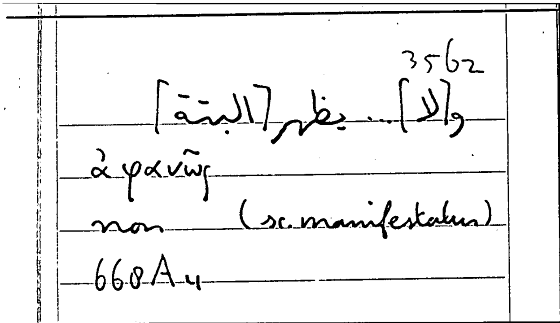 3562
و[لا]... يظهر [البتة]
ἀφανῶς
non (sc. manifestatur)
668A4